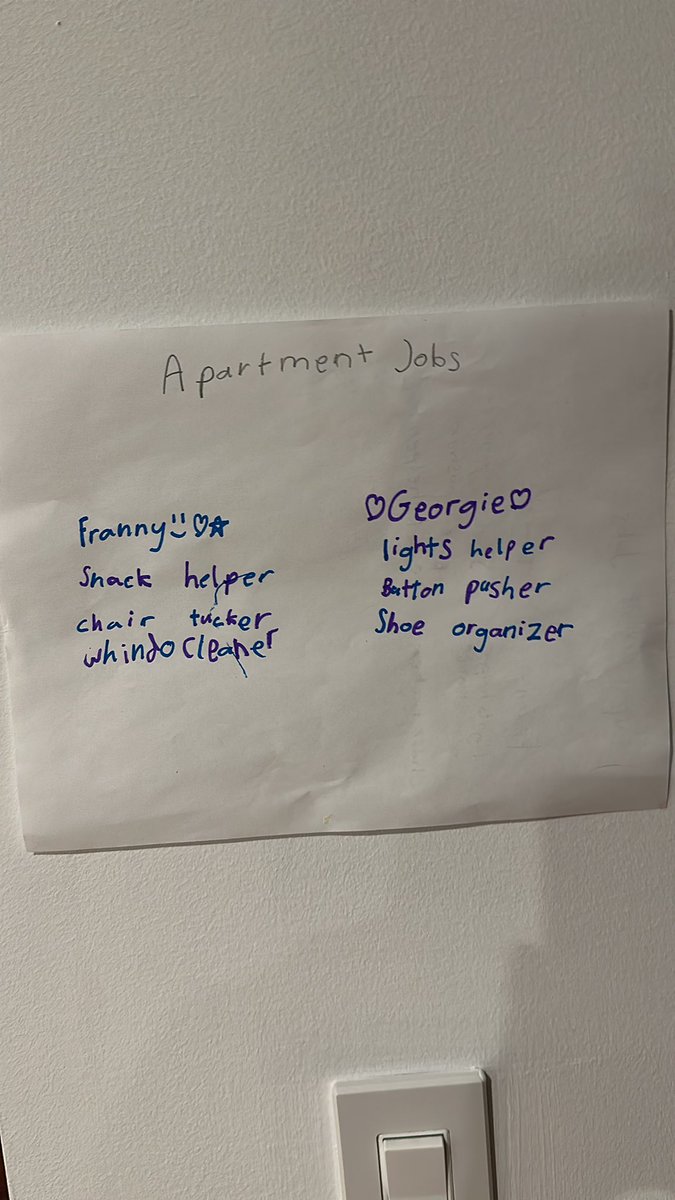 Apartment Jobs
Franny
Snack helper
chair tucker
whindo cleaner
Georgie
lights helper
Button pusher
Shoe organizer